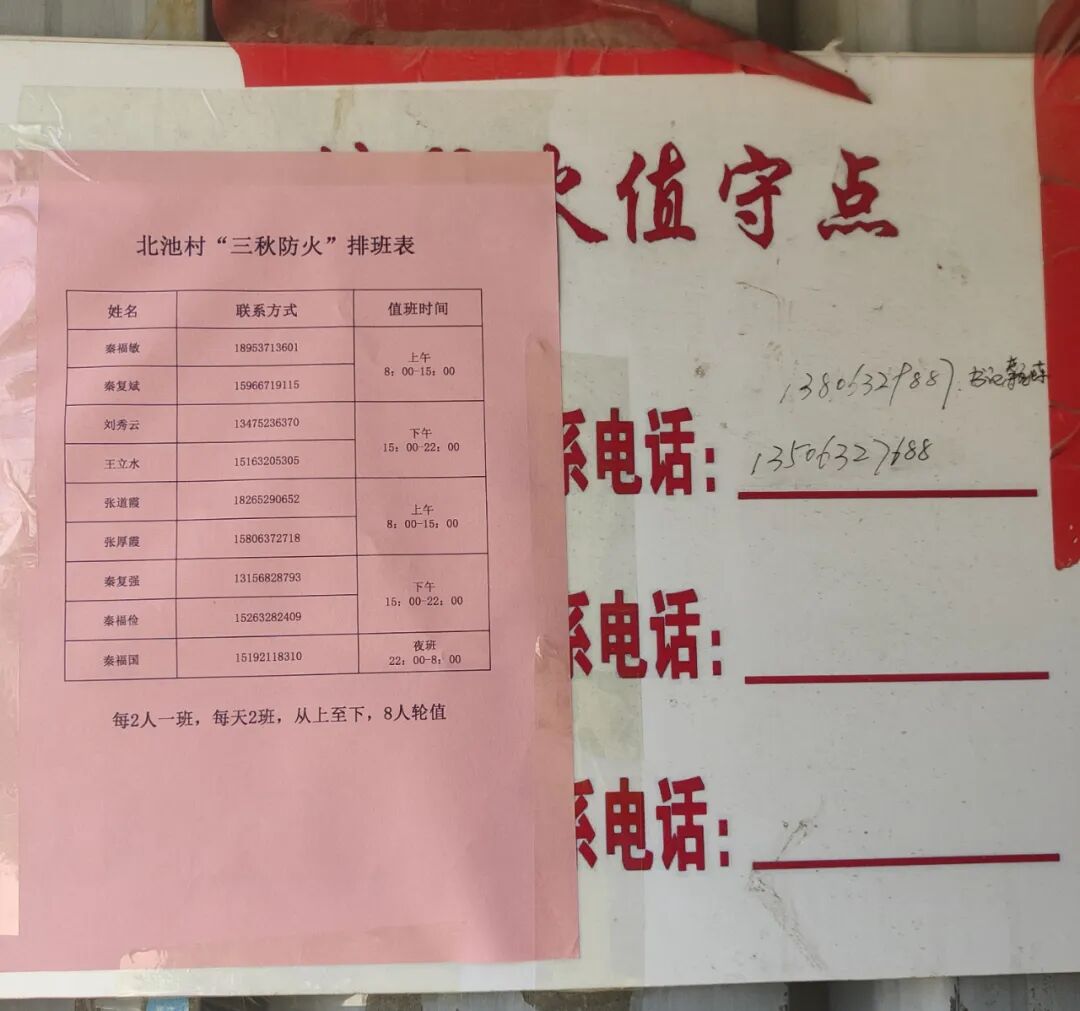 北池村“三秋防火”排班表
姓名 联系方式 值班时间
秦福敏 18953713601 上午
8：00-15：00
秦复斌 15966719115
刘秀云 13475236370 下午
15：00-22：00
王立水 15163205305
张道霞 18265290652 上午
8：00-15：00
张厚霞 15806372718
秦复强 13156828793 下午
15：00-22：00
秦福俭 15263282409
秦福国 15192118310 夜班
22：00-8：00
每2人一班，每天2班，从上至下，8人轮值
火值守点
13806329887 书记
系电话： 13506327688
系电话：
系电话：